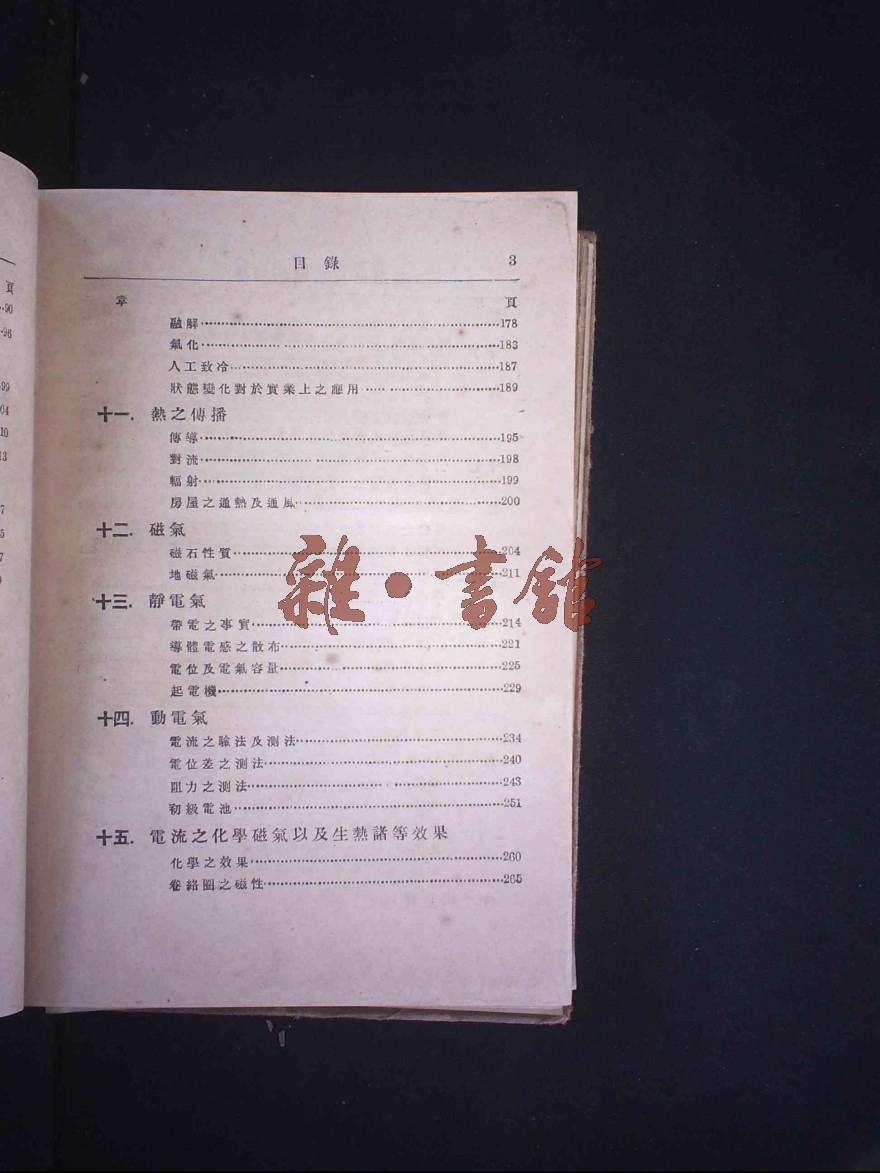 目錄 3
章 頁
融解 178
氣化 183
人工致冷 187
狀態變化對於實業上之應用 189
十一. 熱之傳播
傳導 195
對流 198
輻射 199
房屋之通熱及通風 200
十二. 磁氣
磁石性質 204
地磁氣 211
十三. 靜電氣
帶電之事實 214
導體電感之散布 221
電位及電氣容量 225
起電機 229
十四. 動電氣
電流之驗法及測法 234
電位差之測法 240
阻力之測法 243
初級電池 251
十五. 電流之化學磁氣以及生熱諸等效果
化學之效果 260
卷絡圈之磁性 265
雜·書館
頁
90
96
99
04
10
13
7
5
7
9